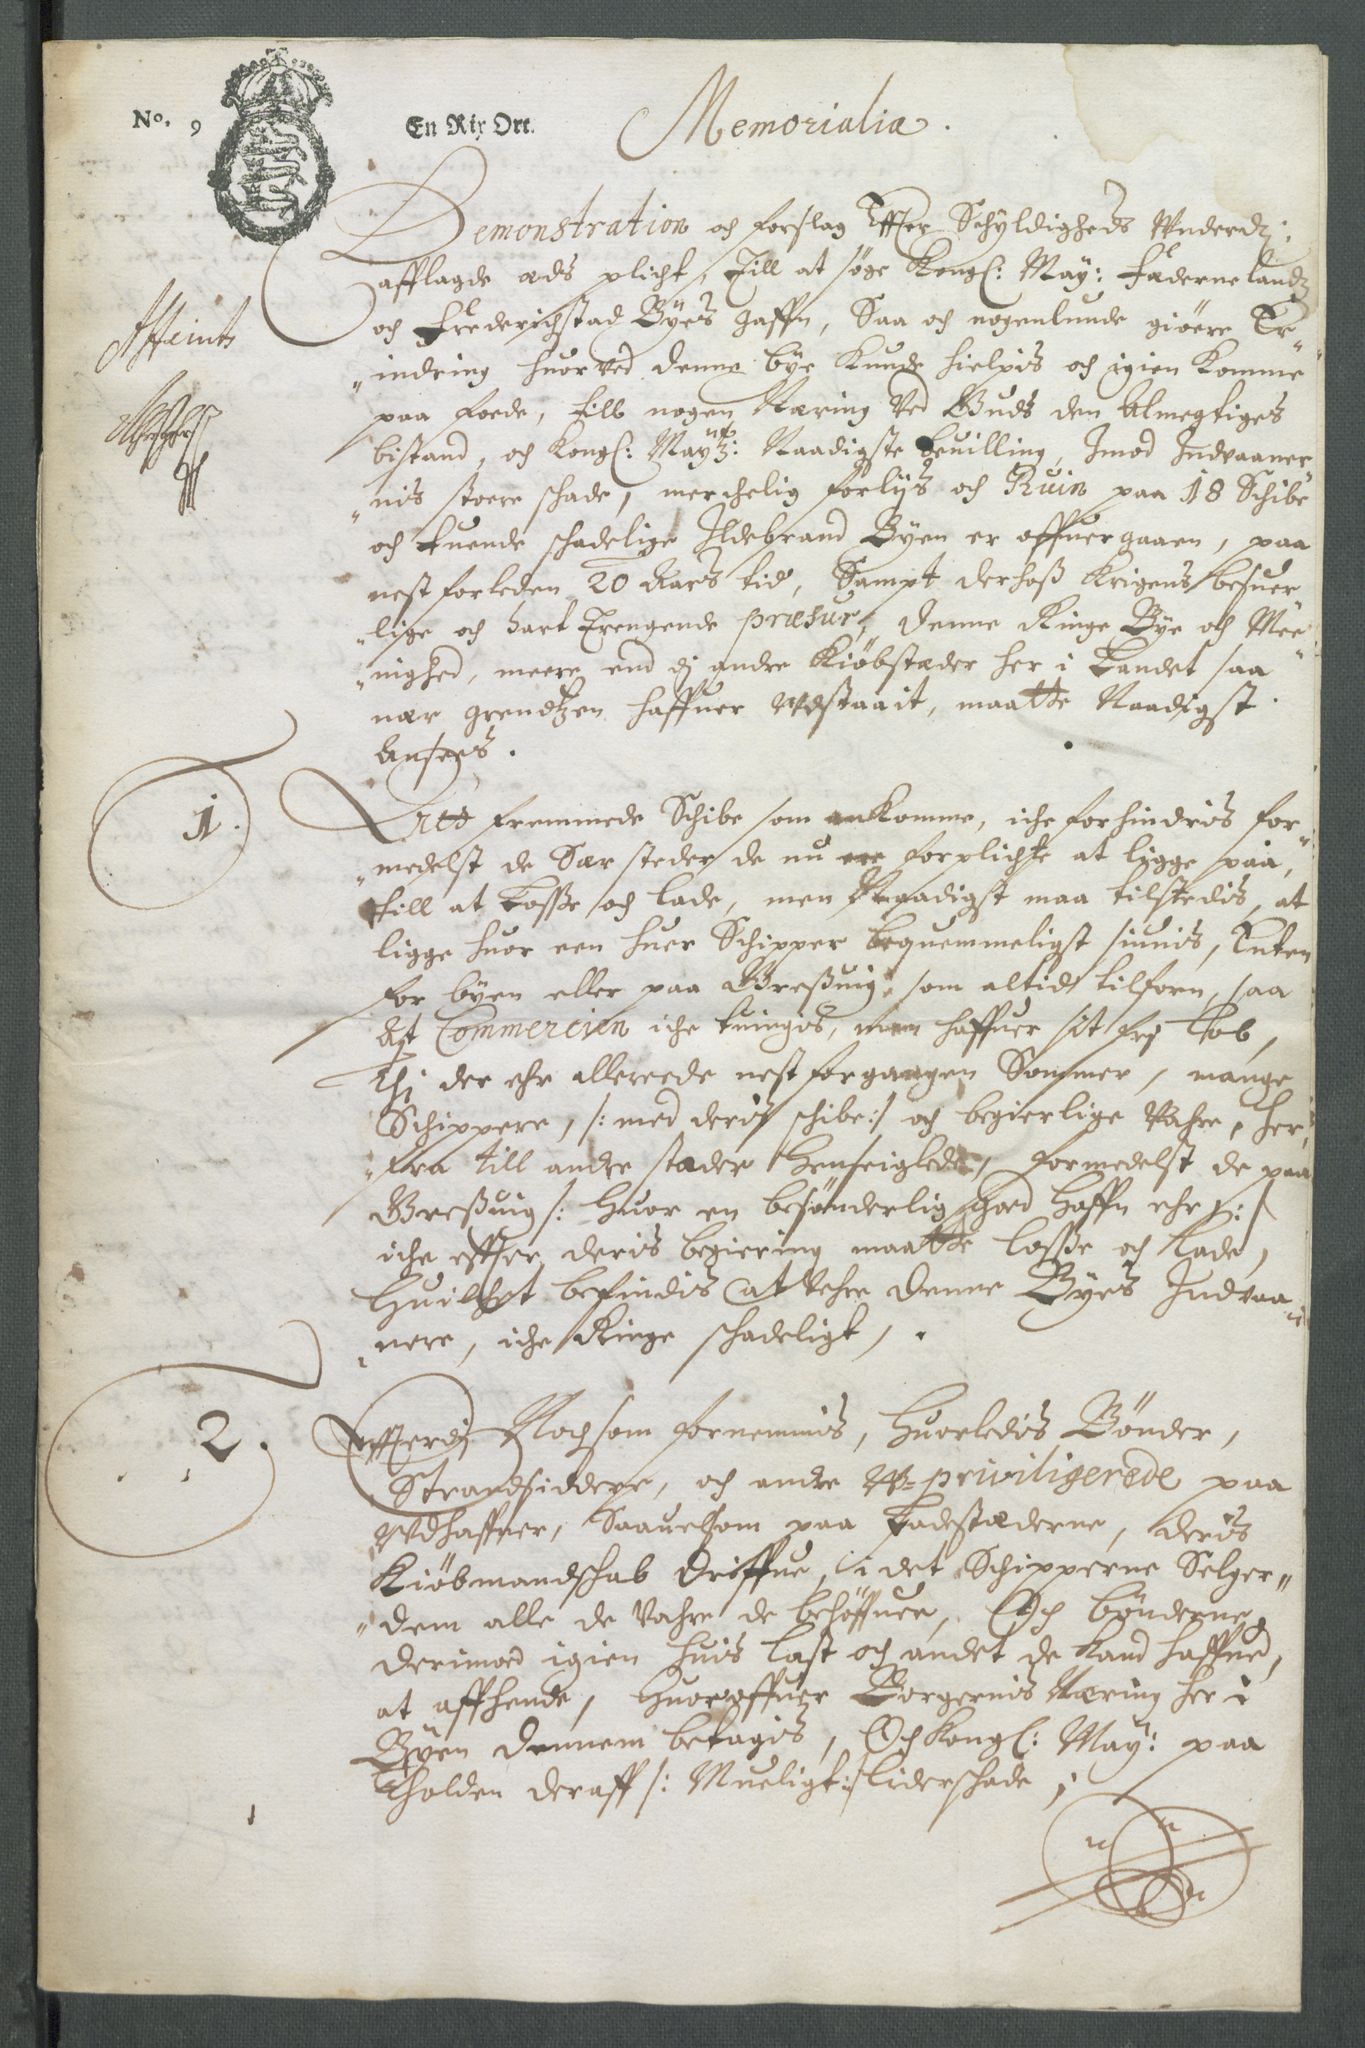 No. 9
En Rix Ort.
Memorialia.
Demonstration och forslag Effter Schyldigheds Wnderd:
afflagde æds plicht, Till at søge Kongl: May: Fæderneslandz
och Frederichstad Byes gaffn, Saa och nogenlunde giøre Er¬
indring huorved denne bye Kunde hielpis och igien Komme
paa foede, till nogen Næring Ved Guds den Almegtiges
bistand, och Kongl: Maytz: Naadigste beuilling, Imod Indvaaner
nis stoere schade, merchelig forlijs och Ruin paa 18 Schibe
och tuende schadelige Ildebrand Byen er offuergaaen, paa
nest forleden 20 Aars tid, Sampt derhoß Krigens besuer
lige och hart Trengende præsur, denne Ringe Bye och Mee
nighed, meere end dj andre Kiøbstæder her i Landet saa
nær grendtzen haffuer Wdstaait, maatte Naadigst
Ansees.
1.
At fremmede Schibe som ankomme, iche forhindris for
medelst de Sær steder de nu ere forplichte at ligge paa,
till at Losse och lade, men Naadigst maa tilstedis, at
ligge huor een huer Schipper bequemmeligst siunis, Enten
for byen eller paa Greßuig, som altid tilforn, saa
At Commercien iche tuingis, men haffuer sit frj Løb,
Thj der ehr allereede nest forgangen Sommer, mange
Schippere, /: med deris schibe :/ och begierlige Vahre, her
fra till andre stæder henseiglede, formedelst de paa
Greßuig /: huor en besønderlig goed Haffn ehr :/
iche effter deris begiering maatte losse och lade,
Huilchet befindis at vehre denne Byes Indvaa
nere, iche Ringe schadeligt,
2.
Efferdj Nochsom fornemmis, huorledis Bønder,
Strandsiddere, och andre W-priviligerede paa
Wdhaffner, Saauelsom paa Ladestæderne, deris
Kiøbmandschab driffue, i det Schipperne Selger
dem alle de Vahre de behøffuer, Och bønderne
derimoed igien huis last och andet de kand haffue,
at affhende, huoroffuer Borgernis Næring her i
Byen dennem betagis, Och Kongl: May: paa
Tholden deraff /: Mueligt :/ lider schade,